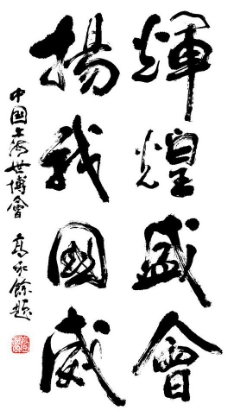 輝煌盛會
揚我國威
中国上海世博會 高永餘題